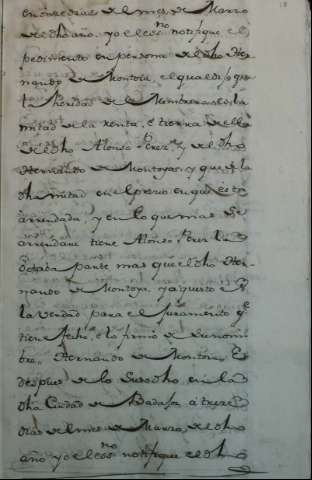 en onse dias del mes de Marzo
del dho año. yo el essno notifique el
pedimiento en persona el dho Her-
nando de Montoia, el qual dijo que
la heridad de Membreras es la
mitad de la renta, e tierra della
del dho Alonso Perez y del dho
Hernando de Montoya, y que la
dha mitad en el precio en que esta
arrendada, y en lo que mas se
arrendare tiene Alonso Perez la
parte mas que el dho Her-
nando de Montoya, y aquesto es
la verdad para el Juramento qe
tiene fecho, e lo firmo de su nom
bre, Hernando de Montoia. E
despues de lo Susodho, en la
dha Ciudad de Badajoz a trece
dias del mes de Marzo, del dho
año yo el essno notifique el dho